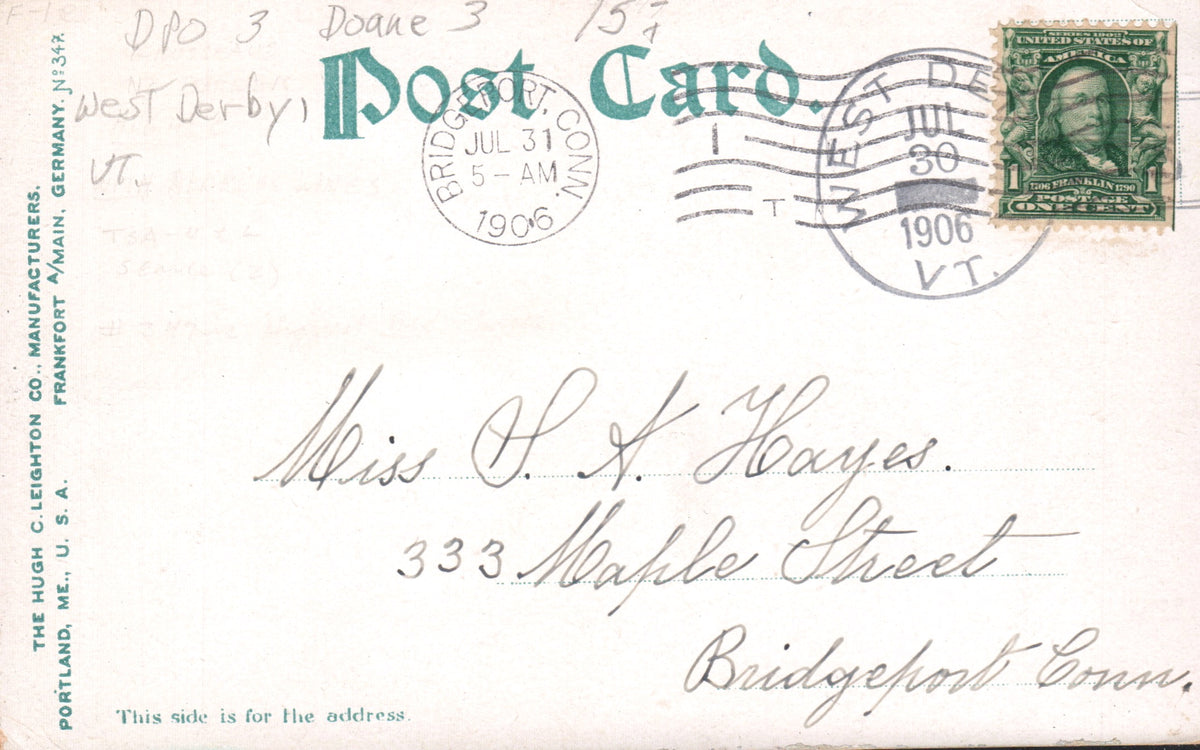 DPO 3 Doane 3
West Derby,
VT.
Post Card.
BRIDGEPORT, CONN.
JUL 31
5 - AM
1906
T
WEST DE
JUL
30
1906
VT.
SERIES 1902
UNITED STATES OF
AMERICA
1 1
1706 FRANKLIN 1790
POSTAGE
ONE CENT
THE HUGH C. LEIGHTON CO., MANUFACTURERS.
PORTLAND, ME., U. S. A. FRANKFORT A/MAIN, GERMANY. Nº 347.
Miss S. A. Hayes.
333 Maple Street
Bridgeport Conn.
This side is for the address.